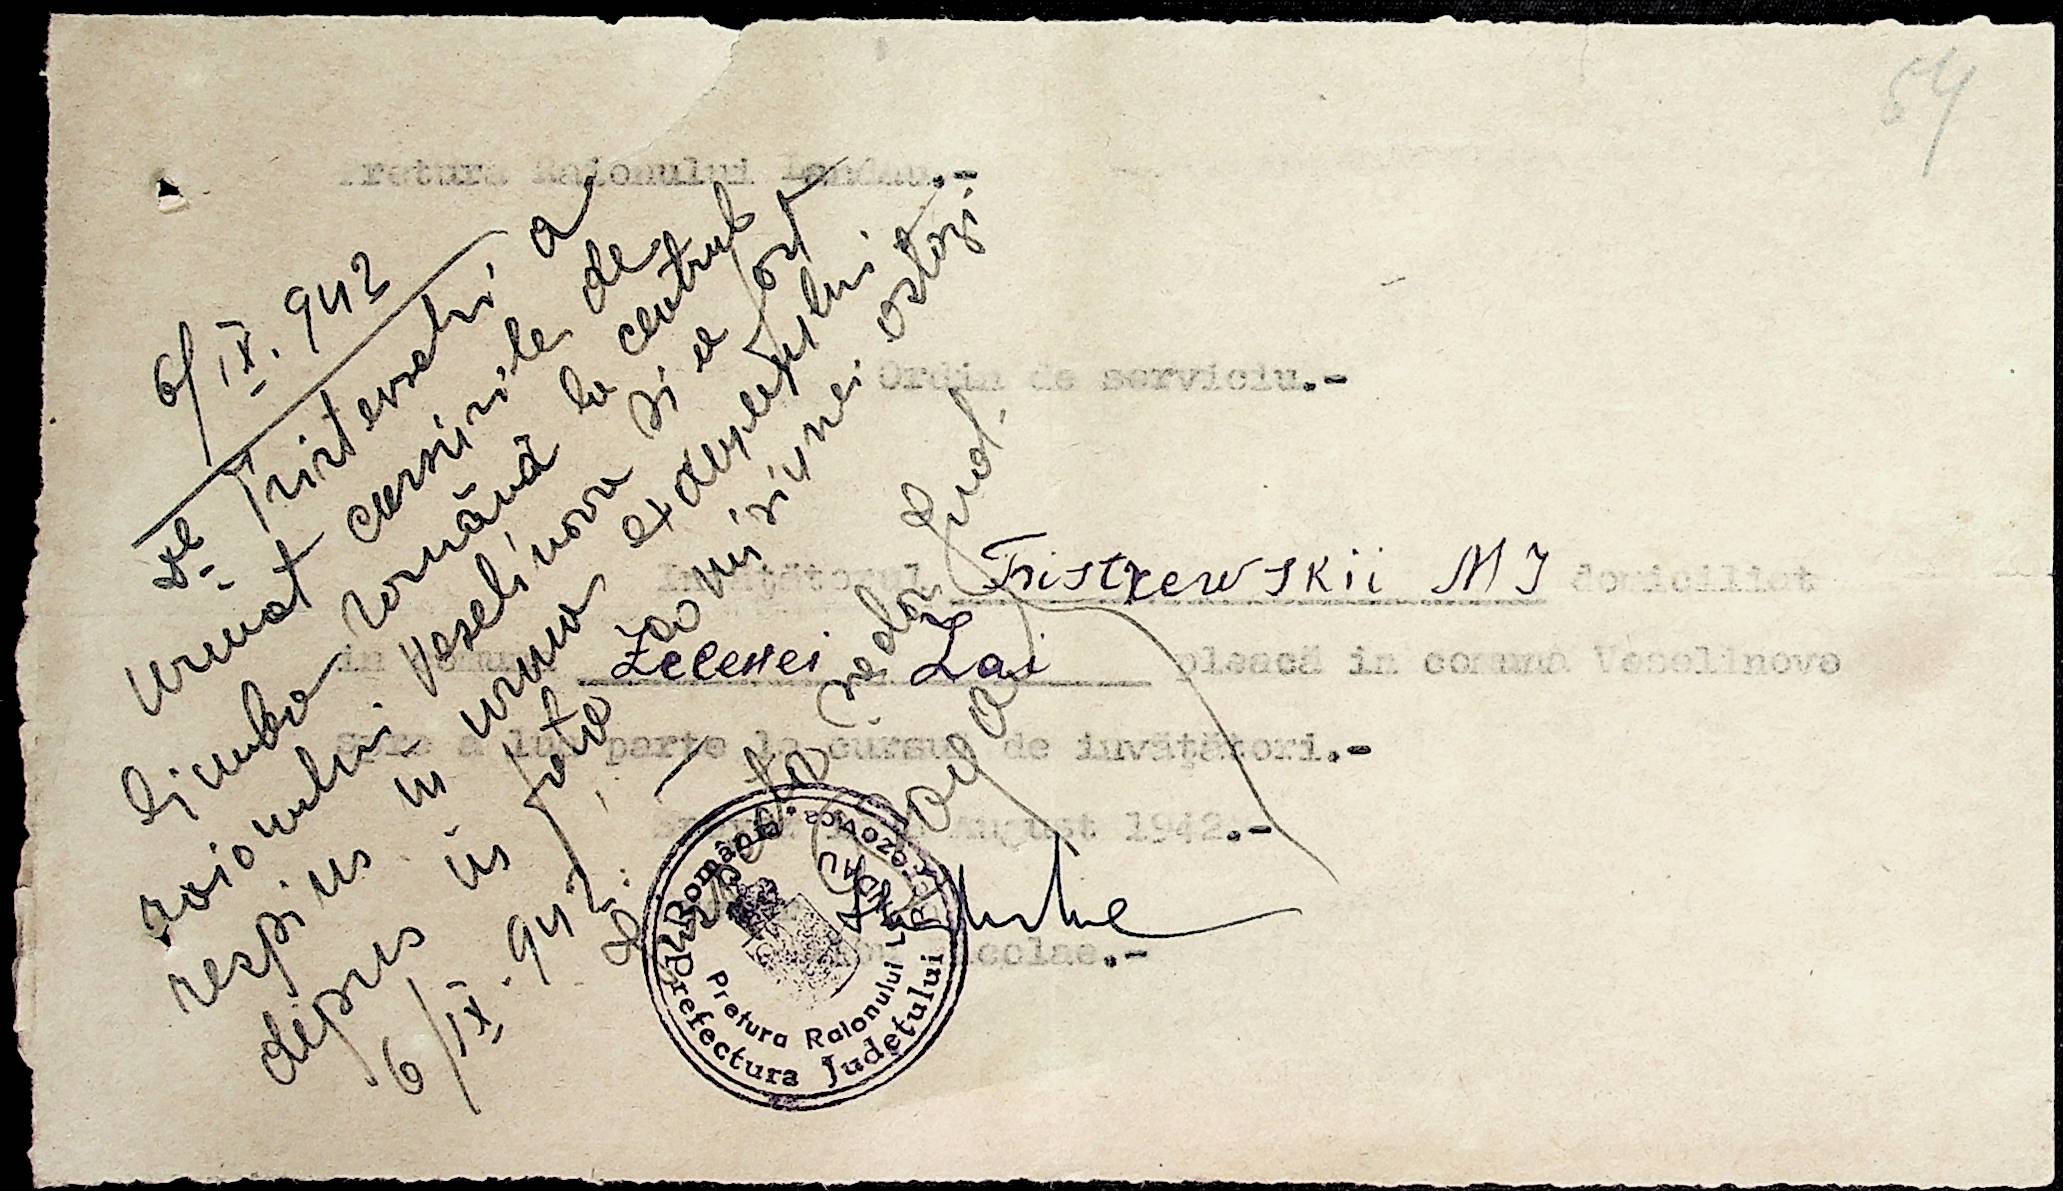 54
Pretura Raionului Landau.-
Ordin de serviciu.-
Invăţătorul Tristxewskii M I domiciliat
in comuna Zelenei Zai pleacă in comuna Veselinovo
Spre a lua parte la cursul de invăţători.-
August 1942.-
Nicolae.-
6/IX.942
Dl. Tristevschi a
urmat cursurile de
limba română la centrul
raionului Veselinovo şi a fost
respins in urma examenului
depus in fata comisiunei astazi
6/IX.942.
România
Prefectura Judeţului Berezovca
Pretura Raionului LANDAU